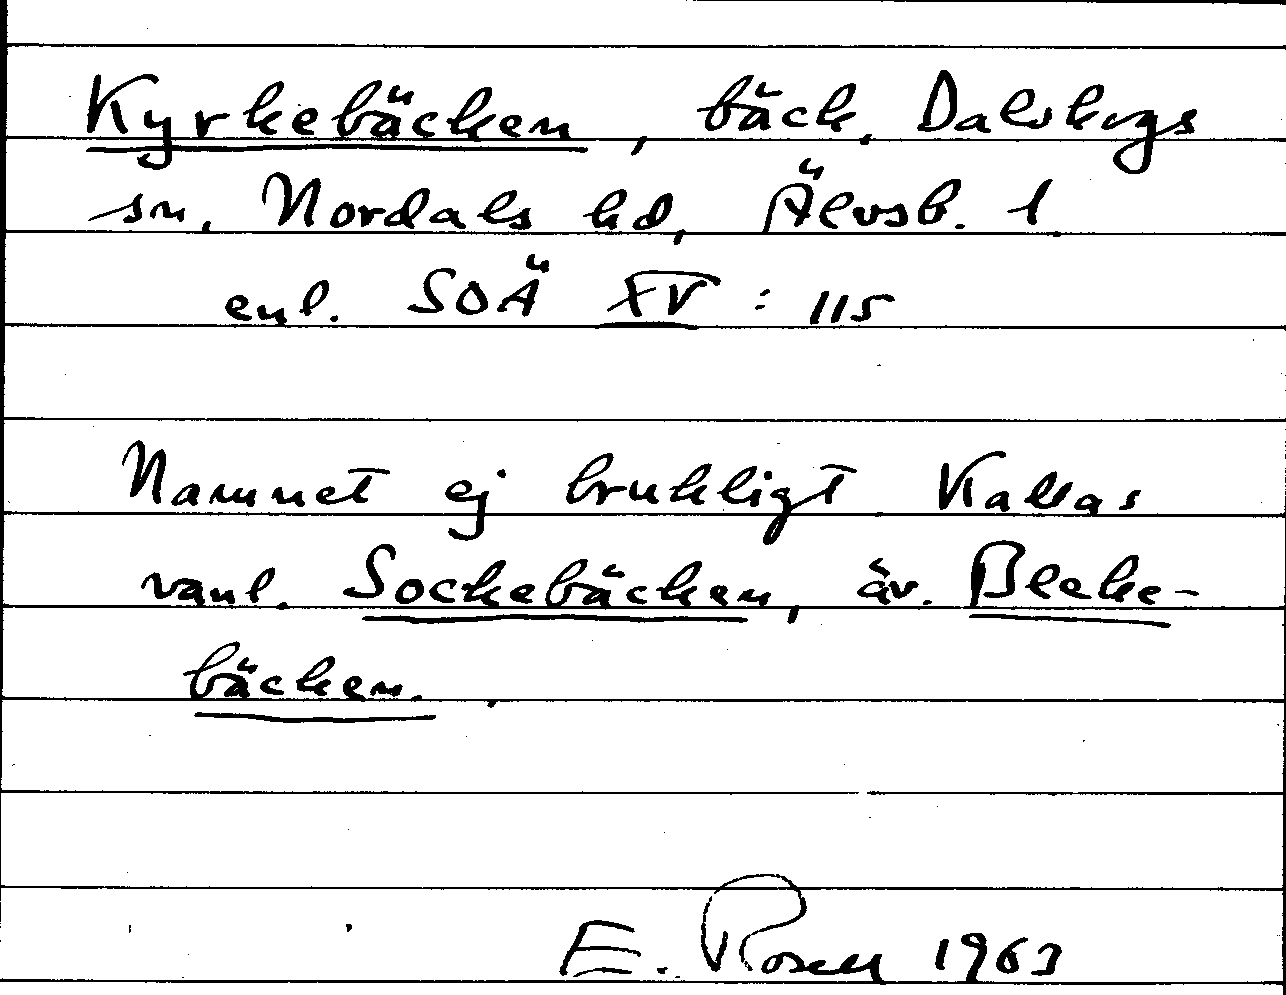 Kyrkebäcken, bäck, Dalskogs
sn, Nordals hd, Älvsb. l.
enl. SOÄ XV : 115
Namnet ej brukligt Kallas
vanl. Sockebäcken, äv. Bleke-
bäcken.
E. Rosell 1963